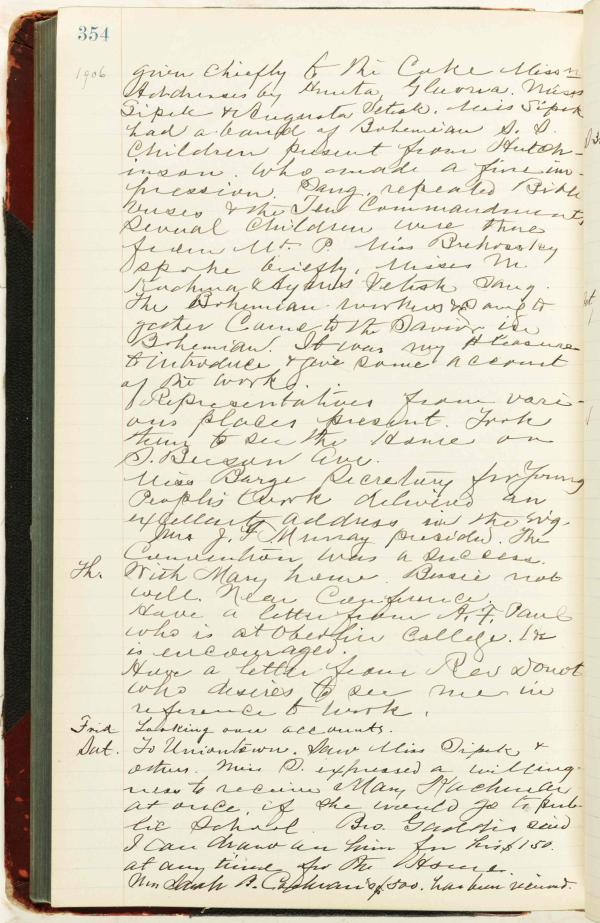 354
1906 given chiefly to the Coke Missn
Addresses by Anuta, Misses
Sipek & Augusta Vetisk. Miss Sipek
had a band of Bohemian S. S.
Children present from Hutch-
inson. Who made a fine im-
pression. Sang, repeated Bible
verses & the Ten Commandments,
Several children were there
from Mt. P. Miss
spoke briefly, Misses M.
Kuchina & Agnes Vetisk Sang.
The Bohemian workers Sang to
gether Come to the Savior in
Bohemian. It was my pleasure
to introduce & give some account
of the work.
Representatives from vari-
ous places present. Took
them to see the Home on
S. Beeson Ave.
Miss Barge Secretary for Young
People's Work delivered an
excellent address in the ev'g
Mrs. J. F. Murray presided. The
Convention was a success.
Th. With Mary home. Bessie not
well. Near Conference.
Have a letter from A. F. Paul
who is at Oberlin College. He
is encouraged.
Have a letter from Rev
who desires to see me in
reference to work.
Frid Looking over accounts.
Sat. To Uniontown. Saw Miss Sipek &
others. Miss S. expressed a willing-
ness to receive Mary
at once, if she would go to pub-
lic School. Bro. Gaddis said
I can draw on him for his $150.
at any time for the Home.
Mrs Sarah B. Cochran's $500. has been received.